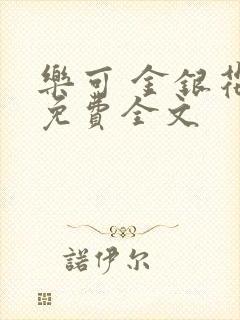 樂可 金銀花
免費全文
諾伊尔